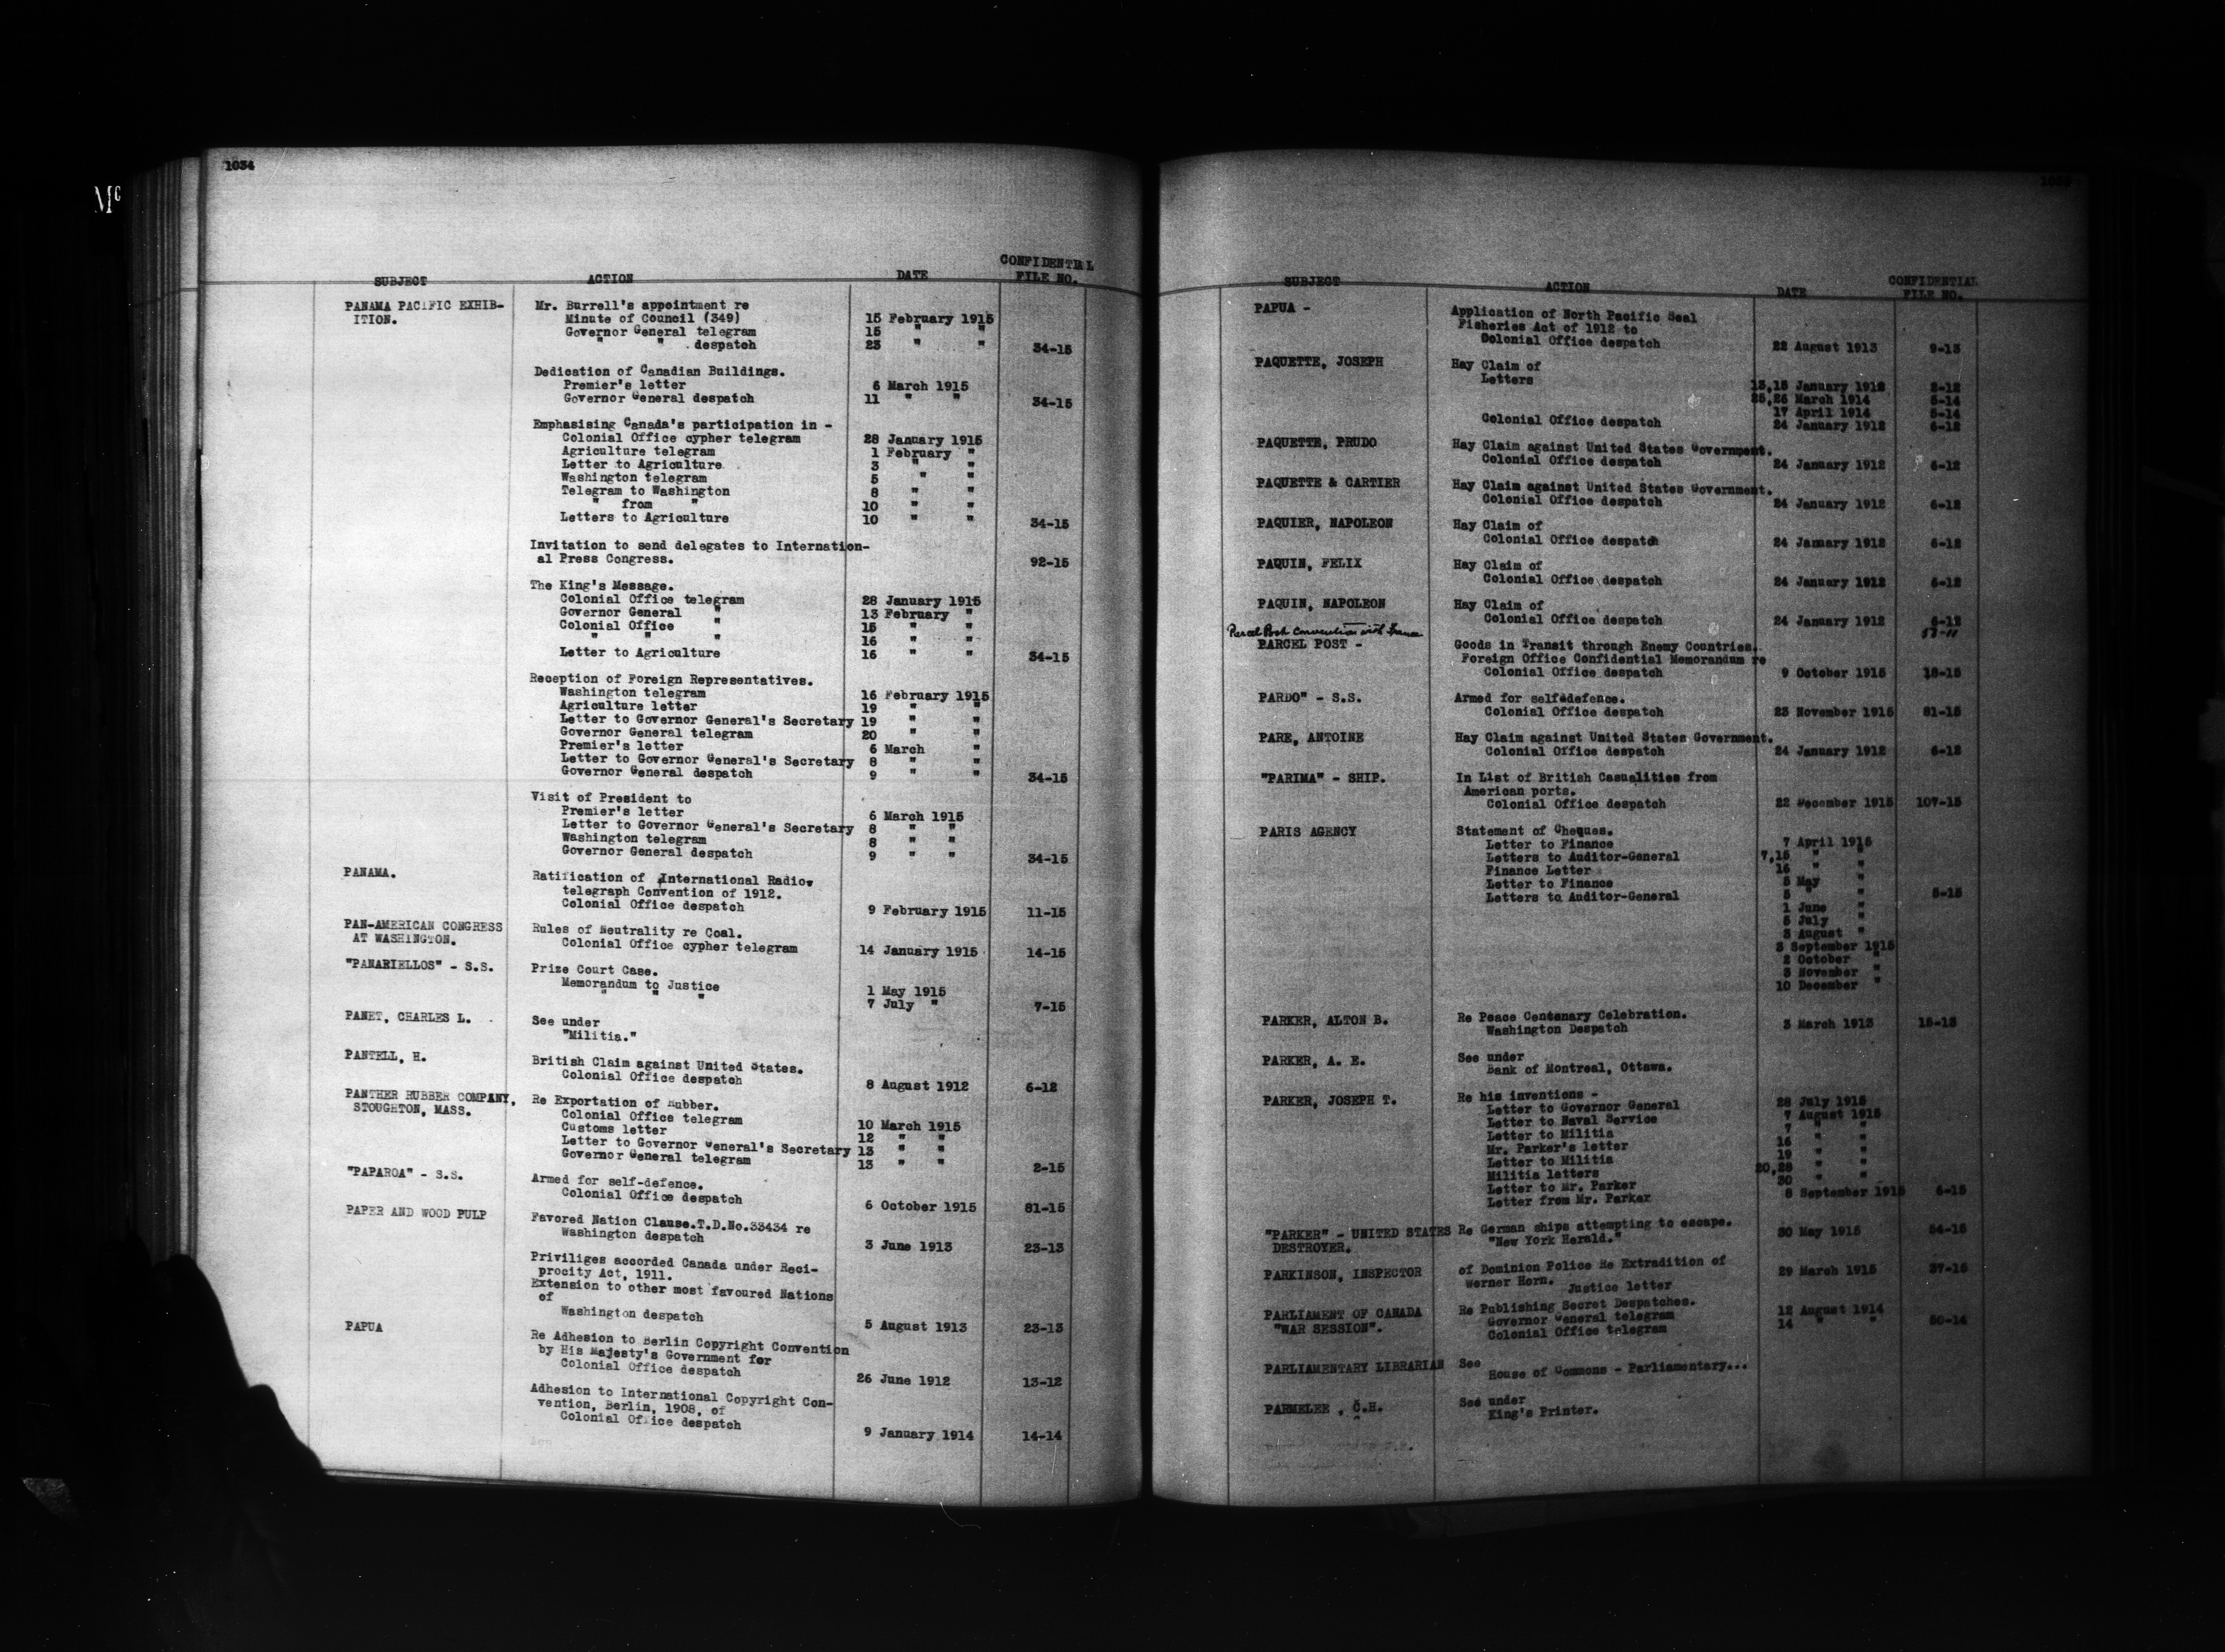 Mc
1034
SUBJECT ACTION DATE CONFIDENTIAL FILE NO.
PANAMA PACIFIC EXHIB- Mr. Burrell's appointment re
ITION. Minute of Council (349) 15 February 1915
Governor General telegram 15 " "
" " despatch 23 " " 34-15
Dedication of Canadian Buildings.
Premier's letter 6 March 1915
Governor General despatch 11 " " 34-15
Emphasising Canada's participation in -
Colonial Office cypher telegram 28 January 1915
Agriculture telegram 1 February "
Letter to Agriculture 3 " "
Washington telegram 5 " "
Telegram to Washington 8 " "
" from " 10 " "
Letters to Agriculture 10 " " 34-15
Invitation to send delegates to Internation-
al Press Congress. 92-15
The King's Message.
Colonial Office telegram 28 January 1915
Governor General " 13 February "
Colonial Office " 15 " "
" " " 16 " "
Letter to Agriculture 16 " " 34-15
Reception of Foreign Representatives.
Washington telegram 16 February 1915
Agriculture letter 19 " "
Letter to Governor General's Secretary 19 " "
Governor General telegram 20 " "
Premier's letter 6 March "
Letter to Governor General's Secretary 8 " "
Governor General despatch 9 " " 34-15
Visit of President to
Premier's letter 6 March 1915
Letter to Governor General's Secretary 8 " "
Washington telegram 8 " "
Governor General despatch 9 " " 34-15
PANAMA. Ratification of International Radio-
telegraph Convention of 1912.
Colonial Office despatch 9 February 1915 11-15
PAN-AMERICAN CONGRESS Rules of Neutrality re Coal.
AT WASHINGTON. Colonial Office cypher telegram 14 January 1915 14-15
"PANARIELLOS" - S.S. Prize Court Case.
Memorandum to Justice 1 May 1915
" " " 7 July " 7-15
PANET, CHARLES L. See under
"Militia."
PANTELL, H. British Claim against United States.
Colonial Office despatch 8 August 1912 6-12
PANTHER RUBBER COMPANY, Re Exportation of Rubber.
STOUGHTON, MASS. Colonial Office telegram 10 March 1915
Customs letter 12 " "
Letter to Governor General's Secretary 13 " "
Governor General telegram 13 " " 2-15
"PAPAROA" - S.S. Armed for self-defence.
Colonial Office despatch 6 October 1915 81-15
PAPER AND WOOD PULP Favored Nation Clause.T.D.No.33434 re
Washington despatch 3 June 1913 23-13
Priviliges accorded Canada under Reci-
procity Act, 1911.
Extension to other most favoured Nations
of
Washington despatch 5 August 1913 23-13
PAPUA Re Adhesion to Berlin Copyright Convention
by His Majesty's Government for
Colonial Office despatch 26 June 1912 13-12
Adhesion to International Copyright Con-
vention, Berlin, 1908, of
Colonial Office despatch 9 January 1914 14-14
SUBJECT ACTION DATE CONFIDENTIAL FILE NO.
PAPUA - Application of North Pacific Seal
Fisheries Act of 1912 to
Colonial Office despatch 22 August 1913 9-13
PAQUETTE, JOSEPH Hay Claim of
Letters 13,15 January 1912 2-12
25,26 March 1914 5-14
17 April 1914 5-14
Colonial Office despatch 24 January 1912 6-12
PAQUETTE, PRUDO Hay Claim against United States Government.
Colonial Office despatch 24 January 1912 6-12
PAQUETTE & CARTIER Hay Claim against United States Government.
Colonial Office despatch 24 January 1912 6-12
PAQUIER, NAPOLEON Hay Claim of
Colonial Office despatch 24 January 1912 6-12
PAQUIN, FELIX Hay Claim of
Colonial Office despatch 24 January 1912 6-12
PAQUIN, NAPOLEON Hay Claim of
Colonial Office despatch 24 January 1912 6-12
Parcel Post Convention with France
PARCEL POST - Goods in Transit through Enemy Countries.
Foreign Office Confidential Memorandum re
Colonial Office despatch 9 October 1915 18-15
PARDO" - S.S. Armed for self-defence.
Colonial Office despatch 23 November 1915 81-15
PARE, ANTOINE Hay Claim against United States Government.
Colonial Office despatch 24 January 1912 6-12
"PARIMA" - SHIP. In List of British Casualities from
American ports.
Colonial Office despatch 22 December 1915 107-15
PARIS AGENCY Statement of Cheques.
Letter to Finance 7 April 1915
Letters to Auditor-General 7,15 " "
Finance Letter 16 " "
Letter to Finance 5 May "
Letters to Auditor-General 5 " " 5-15
1 June "
5 July "
3 August "
3 September 1915
2 October "
3 November "
10 December "
PARKER, ALTON B. Re Peace Centenary Celebration.
Washington Despatch 3 March 1913 15-13
PARKER, A. E. See under
Bank of Montreal, Ottawa.
PARKER, JOSEPH T. Re his inventions -
Letter to Governor General 28 July 1915
Letter to Naval Service 7 August 1915
Letter to Militia 7 " "
Mr. Parker's letter 16 " "
Letter to Militia 19 " "
Militia letters 20,28 " "
Letter to Mr. Parker 30 " "
Letter from Mr. Parker 8 September 1915 6-15
"PARKER" - UNITED STATES Re German ships attempting to escape.
DESTROYER. "New York Herald." 30 May 1915 54-15
PARKINSON, INSPECTOR of Dominion Police Re Extradition of
Werner Horn. Justice letter 29 March 1915 37-15
PARLIAMENT OF CANADA Re Publishing Secret Despatches.
"WAR SESSION". Governor General telegram 12 August 1914
Colonial Office telegram 14 " " 50-14
PARLIAMENTARY LIBRARIAN See
House of Commons - Parliamentary...
PARMELEE, C.H. See under
King's Printer.